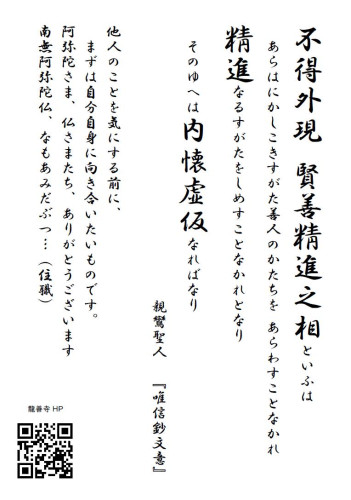 不得外現 賢善精進之相といふは
あらはにかしこきすがた善人のかたちを あらわすことなかれ
精進なるすがたをしめすことなかれとなり
そのゆへは内懐虚仮なればなり
親鸞聖人 『唯信鈔文意』
他人のことを気にする前に、
まずは自分自身に向き合いたいものです。
阿弥陀さま、仏さまたち、ありがとうございます
南無阿弥陀仏、なもあみだぶつ…（住職）
龍善寺 HP